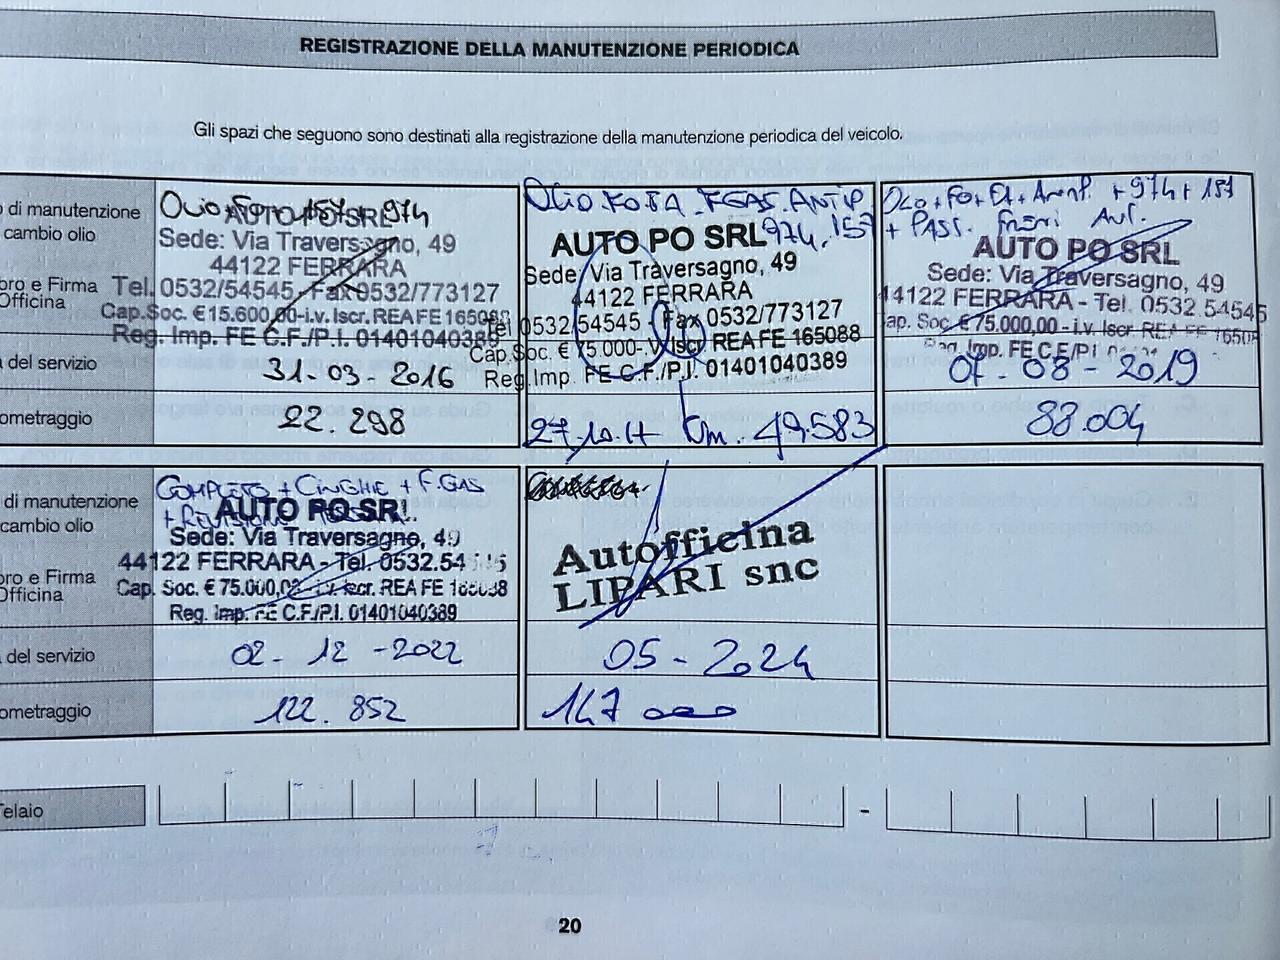 REGISTRAZIONE DELLA MANUTENZIONE PERIODICA
Gli spazi che seguono sono destinati alla registrazione della manutenzione periodica del veicolo.
di manutenzione
cambio olio
bro e Firma
Officina
del servizio
ometraggio
Olio 974
AUTO PO SRL
Sede: Via Traversagno, 49
44122 FERRARA
Tel. 0532/54545 Fax 0532/773127
Cap. Soc. € 15.600,00-i.v. Iscr. REA FE 165088
Reg. Imp. FE C.F./P.I. 01401040389
31-03-2016
22.298
Olio FGAS ANTIP
974, 157
AUTO PO SRL
Sede: Via Traversagno, 49
44122 FERRARA
Tel 0532/54545 Fax 0532/773127
Cap. Soc. € 75.000- Iscr. REA FE 165088
Reg. Imp. FE C.F./P.I. 01401040389
27.10.17 Km. 49.583
+ 974 + 157
+ PAST. Freni
AUTO PO SRL
Sede: Via Traversagno, 49
44122 FERRARA - Tel. 0532 54545
Cap. Soc. € 75.000,00 - i.v. Iscr. REA FE 16508
Reg. Imp. FE C.F./P.I.
07-08-2019
88.004
di manutenzione
cambio olio
bro e Firma
Officina
del servizio
ometraggio
COMPLETO + CINGHIE + FGAS
+ REVISIONE
AUTO PO SRL
Sede: Via Traversagno, 49
44122 FERRARA - Tel. 0532.54
Cap. Soc. € 75.000,00 - i.v. Iscr. REA FE 165088
Reg. Imp. FE C.F./P.I. 01401040389
02-12-2022
122.852
Autofficina
LIPARI snc
05-2024
147 000
Telaio
-
20